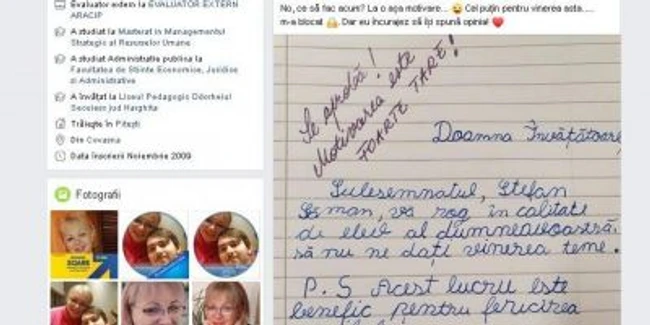 Evaluator extern la EVALUATOR EXTERN
ARACIP
A studiat la Masterat in Managementul
Strategic al Resurselor Umane
A studiat Administratie publica la
Facultatea de Stiinte Economice, Juridice
si Administrative
A învățat la Liceul Pedagogic Odorheiul
Secuiesc jud Harghita
Trăiește în Pitești
Din Covasna
Data înscrierii Noiembrie 2009
Fotografii
SOARE
No, ce să fac acum? La o așa motivare... Cel puțin pentru vinerea asta.....
m-a blocat Dar eu încurajez să își spună opinia!
Se aprobă!
Motivarea este
FOARTE TARE!
Doamna Învățătoare,
Subsemnatul, Ștefan
vă rog în calitate
de elev al dumneavoastră
să nu ne dați vinerea teme.
P.S Acest lucru este
benefic pentru fericirea